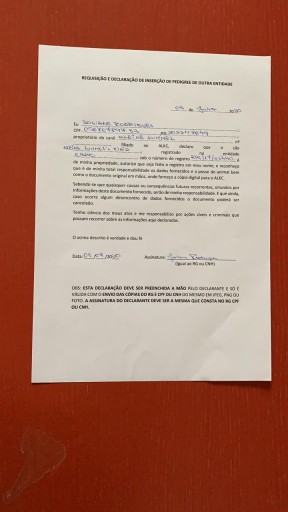 REQUISIÇÃO E DECLARAÇÃO DE INSERÇÃO DE PEDIGREE DE OUTRA ENTIDADE
de
Eu
CPF
proprietário do canil
nº
filiado ao ALKC, declaro que o cão
registrado na entidade
sob o número de registro
é
de minha propriedade, autorizo que seja feito o registro em meu nome, e reconheço
que é de minha total responsabilidade os dados fornecidos e a posse do animal bem
como o documento original em mãos, onde forneço a cópia digital para o ALKC.
Sabendo-se que quaisquer causas ou consequências futuras recorrentes, oriundos por
informações deste documento fornecido, serão de minha responsabilidade. E que ainda,
caso ocorra algum desencontro de dados fornecidos o documento poderá ser
cancelado.
Tenho ciência dos meus atos e me responsabilizo por ações cíveis e criminais que
possam recorrer sobre as informações aqui declaradas.
O acima descrito é verdade e dou fé
Data: Assinatura:
(Igual ao RG ou CNH)
OBS: ESTA DECLARAÇÃO DEVE SER PREENCHIDA A MÃO PELO DECLARANTE E SÓ É
VÁLIDA COM O ENVIO DAS CÓPIAS DO RG E CPF OU CNH DO MESMO EM JPEG, PNG OU
FOTO. A ASSINATURA DO DECLARANTE DEVE SER A MESMA QUE CONSTA NO RG CPF
OU CNH.